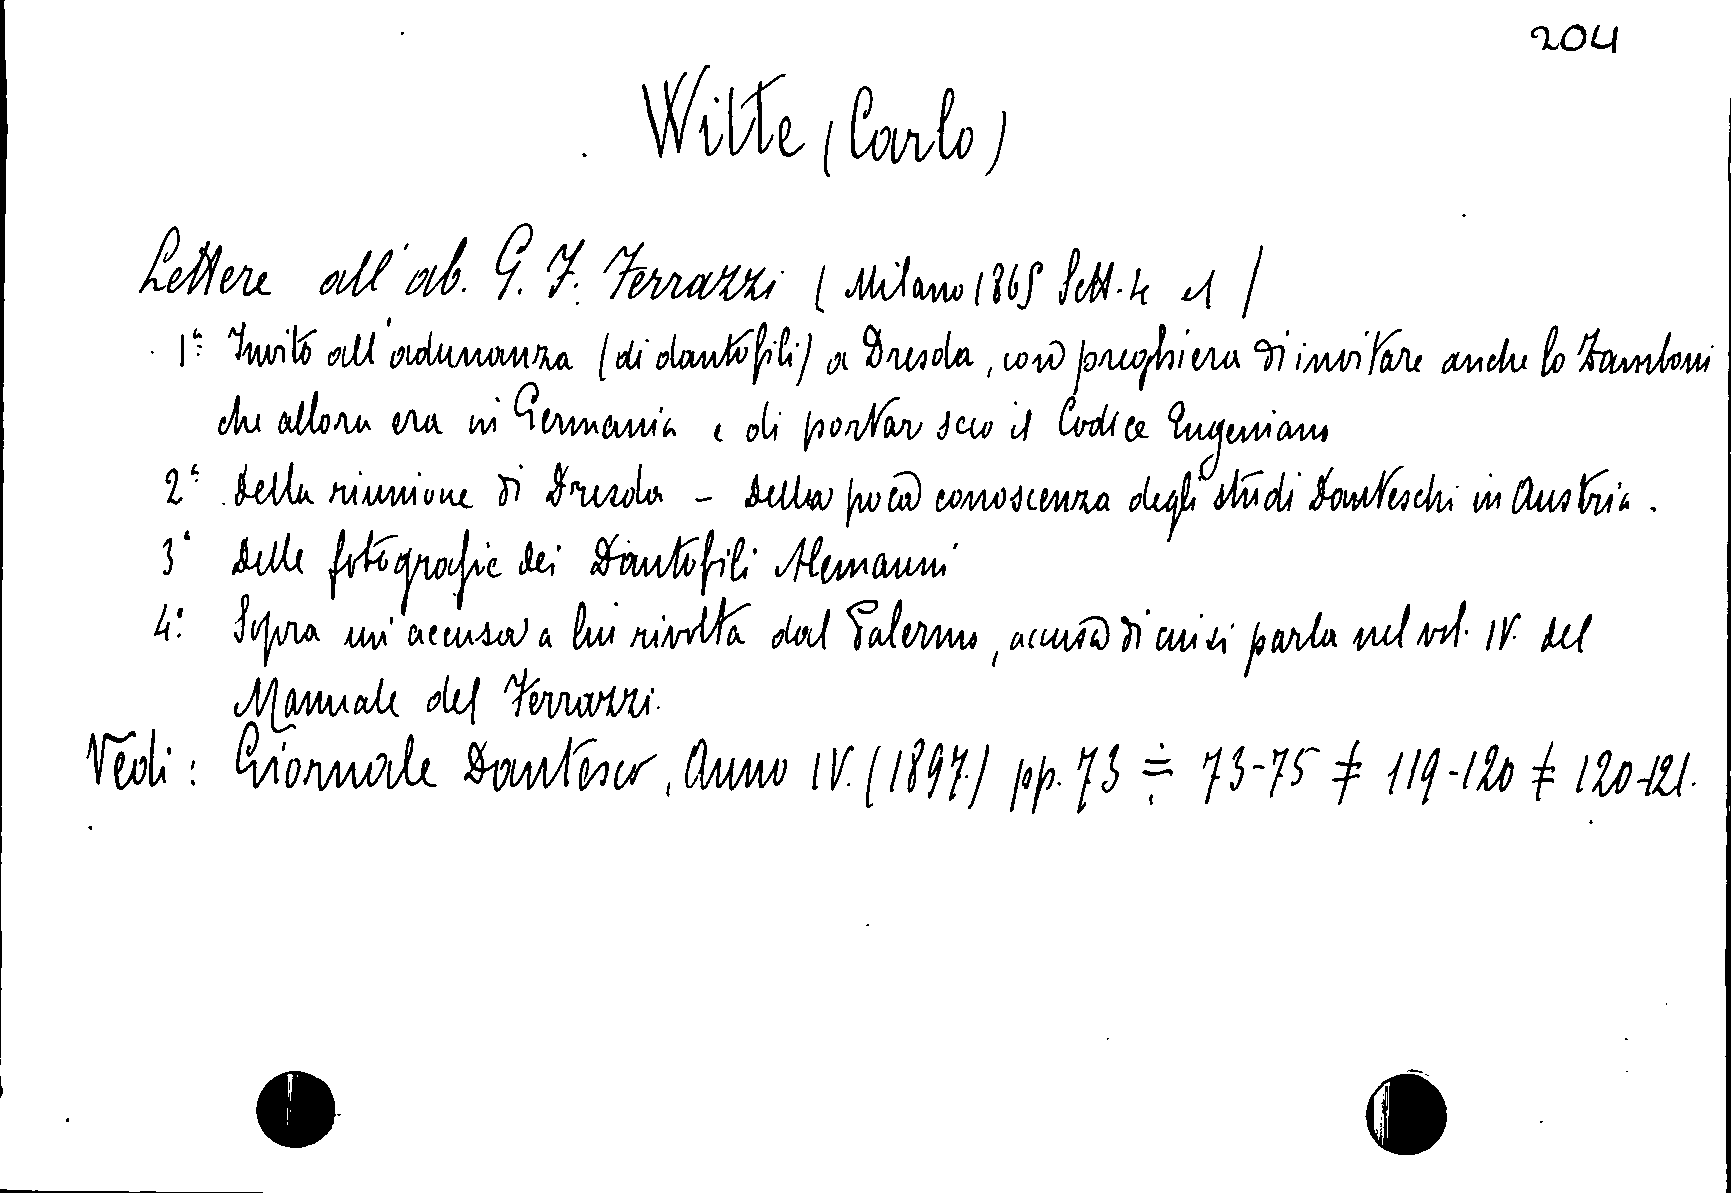 204
Witte (Carlo)
Lettere all'ab. G. J. Ferrazzi (Milano 1865 Sett. 4 et /
1ª Invito all'adunanza (di dantofili) a Dresda, con preghiera di invitare anche lo Zamboni
che allora era in Germania e di portar seco il Codice Eugeniano
2ª Della riunione di Dresda - Della poca conoscenza degli studi Danteschi in Austria.
3ª Delle fotografie dei Dantofili Alemanni
4ª Sopra un'accusa a lui rivolta dal Palermo, accusa di cui si parla nel vol. IV. del
Manuale del Ferrazzi.
Vedi: Giornale Dantesco, Anno IV. (1897) pp. 73 ≠ 73-75 ≠ 119-120 ≠ 120-121.